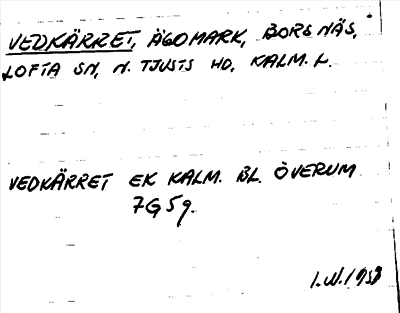 VEDKÄRRET, ÄGOMARK, BORSNÄS,
LOFTA SN, N. TJUSTS HD, KALM. L.
VEDKÄRRET EK KALM. BL. ÖVERUM
7G5g.
I.W.1953